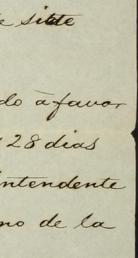 e siete
do á favor
28 dias
Intendente
no de la